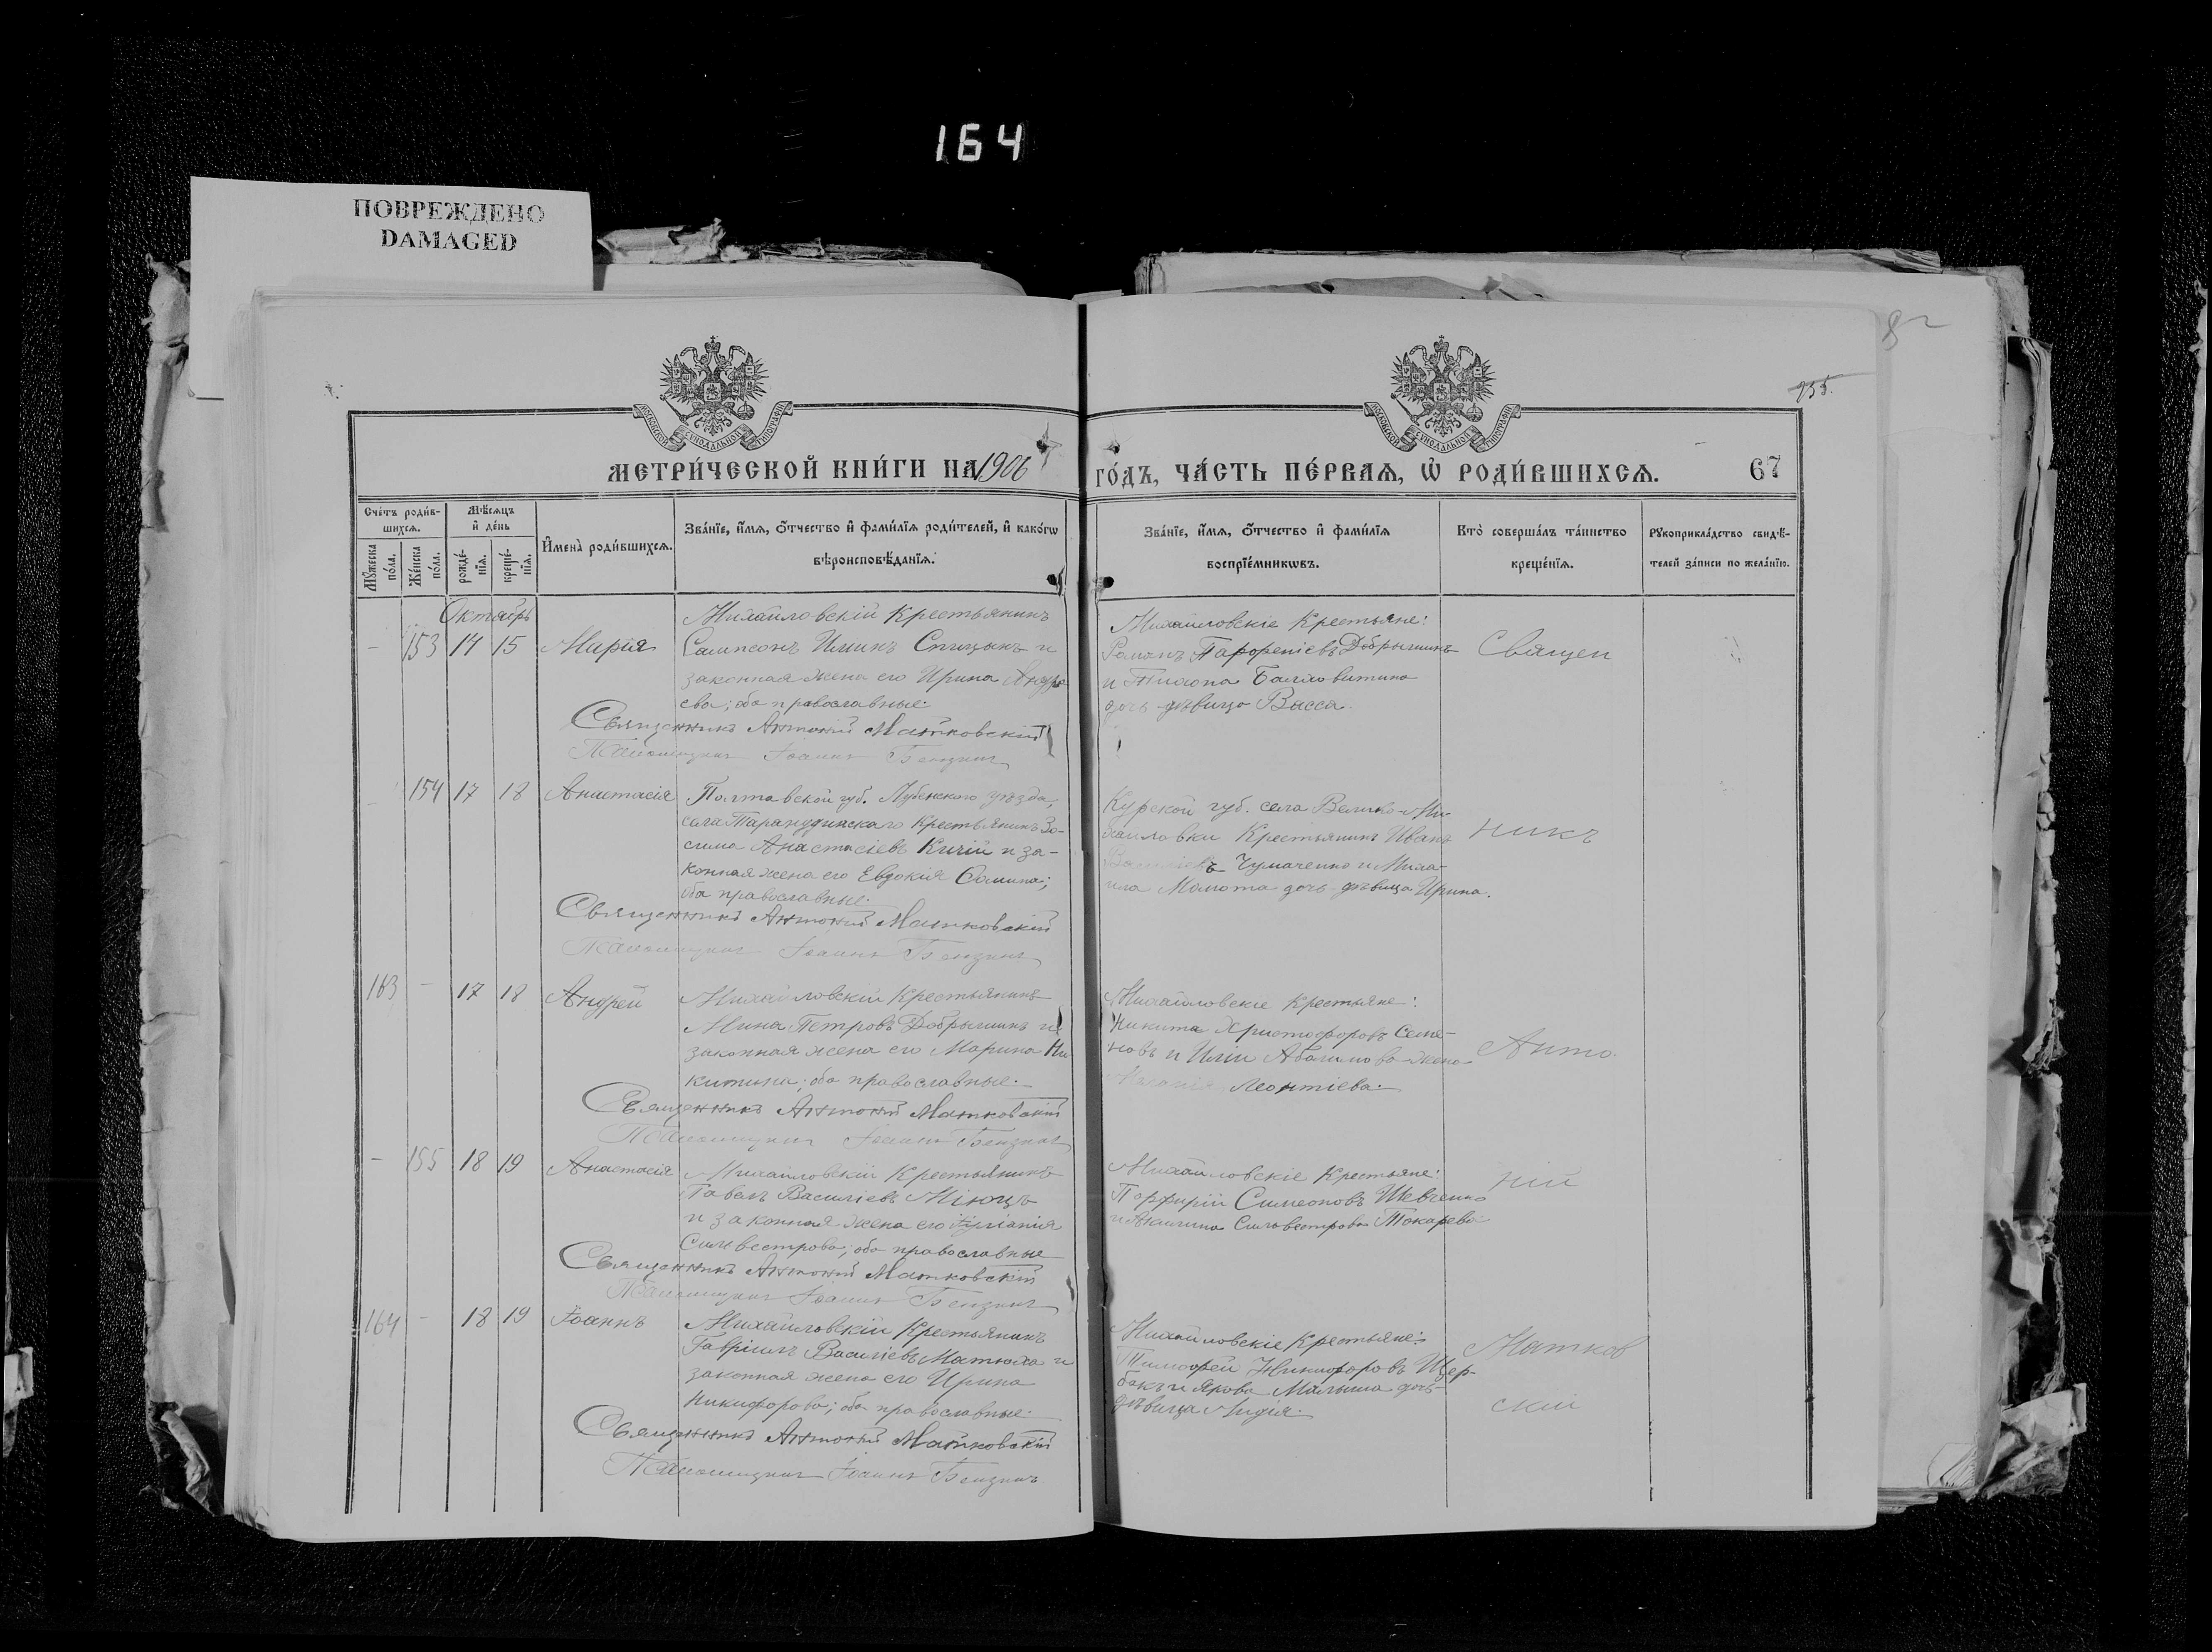 164
ПОВРЕЖДЕНО
DAMAGED
82
935.
МОСКОВСКОЙ СѴНОДАЛЬНОЙ ТИПОГРАФІИ
МОСКОВСКОЙ СѴНОДАЛЬНОЙ ТИПОГРАФІИ
МЕТРИ́ЧЕСКОЙ КНИ́ГИ НА 1906
ГО́ДЪ, ЧА́СТЬ ПЕ́РВАѦ, Ѡ҆ РОДИ́ВШИХСѦ.
67
Сче́тъ роди́в-
шихсѧ.
Мѣ́сѧцъ
и҆ де́нь
Мꙋ́жеска
по́ла.
Же́нска
по́ла.
рожде́-
нїѧ.
креще́-
нїѧ.
И҆мена̀ роди́вшихсѧ.
Зва́нїе, и҆́мѧ, ѻ҆́тчество и҆ фами́лїѧ роди́телей, и҆ како́гѡ
вѣроисповѣ́данїѧ.
Зва́нїе, и҆́мѧ, ѻ҆́тчество и҆ фами́лїѧ
воспрїе́мникѡвъ.
Кто̀ соверша́лъ та́инство
креще́нїѧ.
Рꙋкоприкла́дство свидѣ́-
телей за́писи по жела́нїю.
Октябрь
- 153 14 15 Марія
Михайловскій Крестьянинъ
Сампсонъ Ильинъ Спицынъ и
законная жена его Ирина Андре
ева; оба православные.
Священникъ Антоній Матковскій
Псаломщикъ Іоаннъ
Михайловскіе Крестьяне:
Романъ Добрынинъ
и
дочь дѣвица Васса.
Священ
154 17 18 Анастасія
Полтавской губ. Лубенскаго уѣзда,
села Крестьянинъ Зо-
сима Анастасіевъ Кичій и за-
конная жена его Евдокія
оба православные.
Священникъ Антоній Матковскій
Псаломщикъ Іоаннъ
Курской губ. села Велико-Ми-
хайловки Крестьянинъ Иванъ
Чумаченко и Миха-
ила Мамота дочь дѣвица Ирина.
никъ
163 - 17 18 Андрей
Михайловскій Крестьянинъ
Мина Петровъ Добрынинъ и
законная жена его Марина Ни
китина; оба православные.
Священникъ Антоній Матковскій
Псаломщикъ Іоаннъ
Михайловскіе Крестьяне:
Никита Христофоровъ Семе-
новъ и Иліи жена
Леонтіева.
Анто
- 155 18 19 Анастасія
Михайловскій Крестьянинъ
Павелъ Василіевъ
и законная жена его Іуліанія
Силвестрова; оба православные
Священникъ Антоній Матковскій
Псаломщикъ Іоаннъ
Михайловскіе Крестьяне:
Порфирій Симеоновъ Шевченко
и Акилина Силвестрова Токарева
ній
164 - 18 19 Іоаннъ
Михайловскій Крестьянинъ
Гавріилъ Василіевъ Матюха и
законная жена его Ирина
Никифорова; оба православные.
Священникъ Антоній Матковскій
Псаломщикъ Іоаннъ
Михайловскіе Крестьяне:
Тимофей Никифоровъ Щер-
бакъ и Малыша дочь
дѣвица Лидія.
Матков
скій